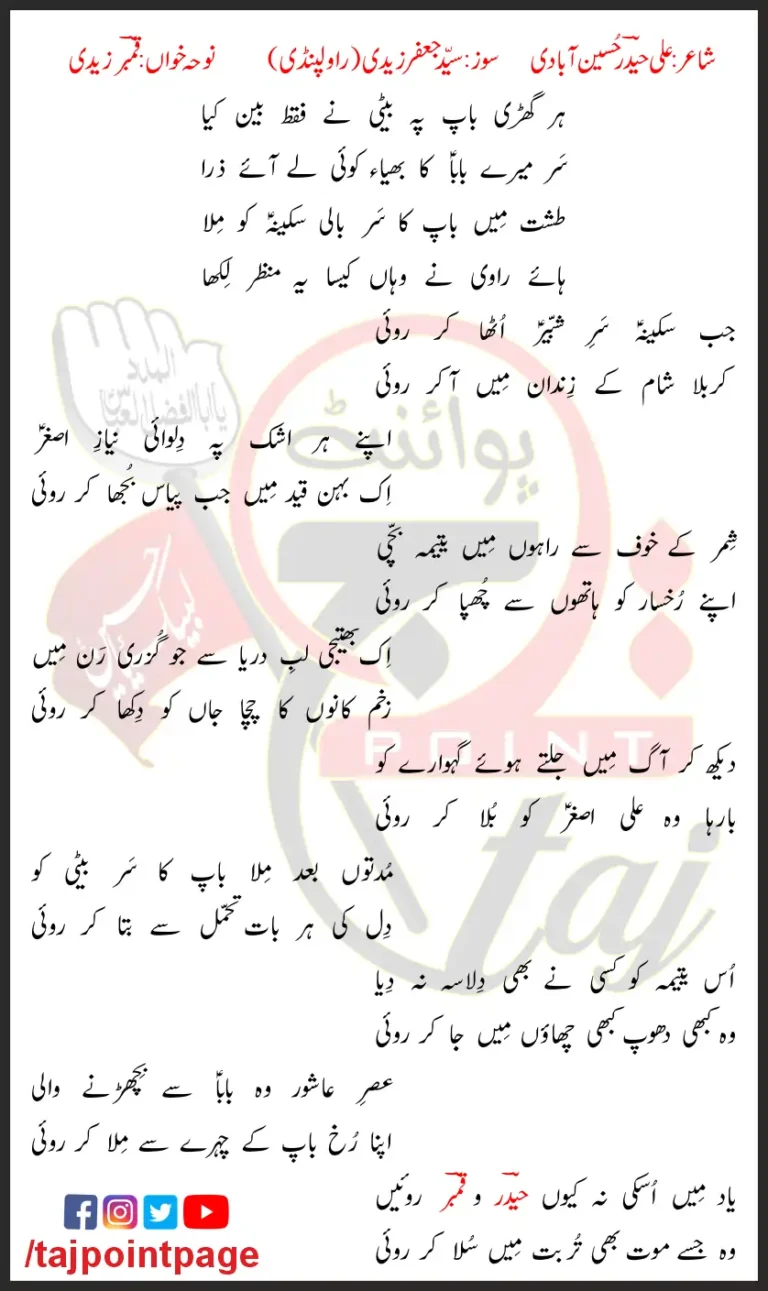 شاعر: علی حیدؔر حُسین آبادی سوز: سیّد جعفر زیدی (راولپنڈی) نوحہ خواں: قمبؔر زیدی
ہر گھڑی باپ پہ بیٹی نے فقط بین کیا
سَر میرے باباؑ کا بھیاء کوئی لے آئے ذرا
طشت مِیں باپ کا سَر بالی سکینہؑ کو مِلا
ہائے راوی نے وہاں کیسا یہ منظر لِکھا
جب سکینہؑ سَرِ شبّیرؑ اُٹھا کر روئی
کربلا شام کے زِندان مِیں آ کر روئی
اپنے ہر اشک پہ دِلوائی نیازِ اصغرؑ
اِک بہن قید مِیں جب پیاس بُجھا کر روئی
شِمر کے خوف سے راہوں مِیں یتیمہ بچّی
اپنے رُخسار کو ہاتھوں سے چُھپا کر روئی
اِک بھتیجی لبِ دریا سے جو گُزری رَن مِیں
زخم کانوں کا چچا جاں کو دِکھا کر روئی
دیکھ کر آگ مِیں جلتے ہوئے گہوارے کو
بارہا وہ علی اصغرؑ کو بُلا کر روئی
مُدتوں بعد مِلا باپ کا سَر بیٹی کو
دِل کی ہر بات تحمّل سے بتا کر روئی
اُس یتیمہ کو کسی نے بھی دِلاسہ نہ دِیا
وہ کبھی دھوپ کبھی چھاؤں مِیں جا کر روئی
عصرِ عاشور وہ باباؑ سے بچھڑنے والی
اپنا رُخ باپ کے چہرے سے مِلا کر روئی
یاد مِیں اُسکی نہ کیوں حیدؔر و قمبؔر روئیں
وہ جسے موت بھی تُربت مِیں سُلا کر روئی
/tajpointpage
المدد
یا ابا الفضل العباس
لبیک یا حسین
پوائنٹ
تاج
POINT
taj